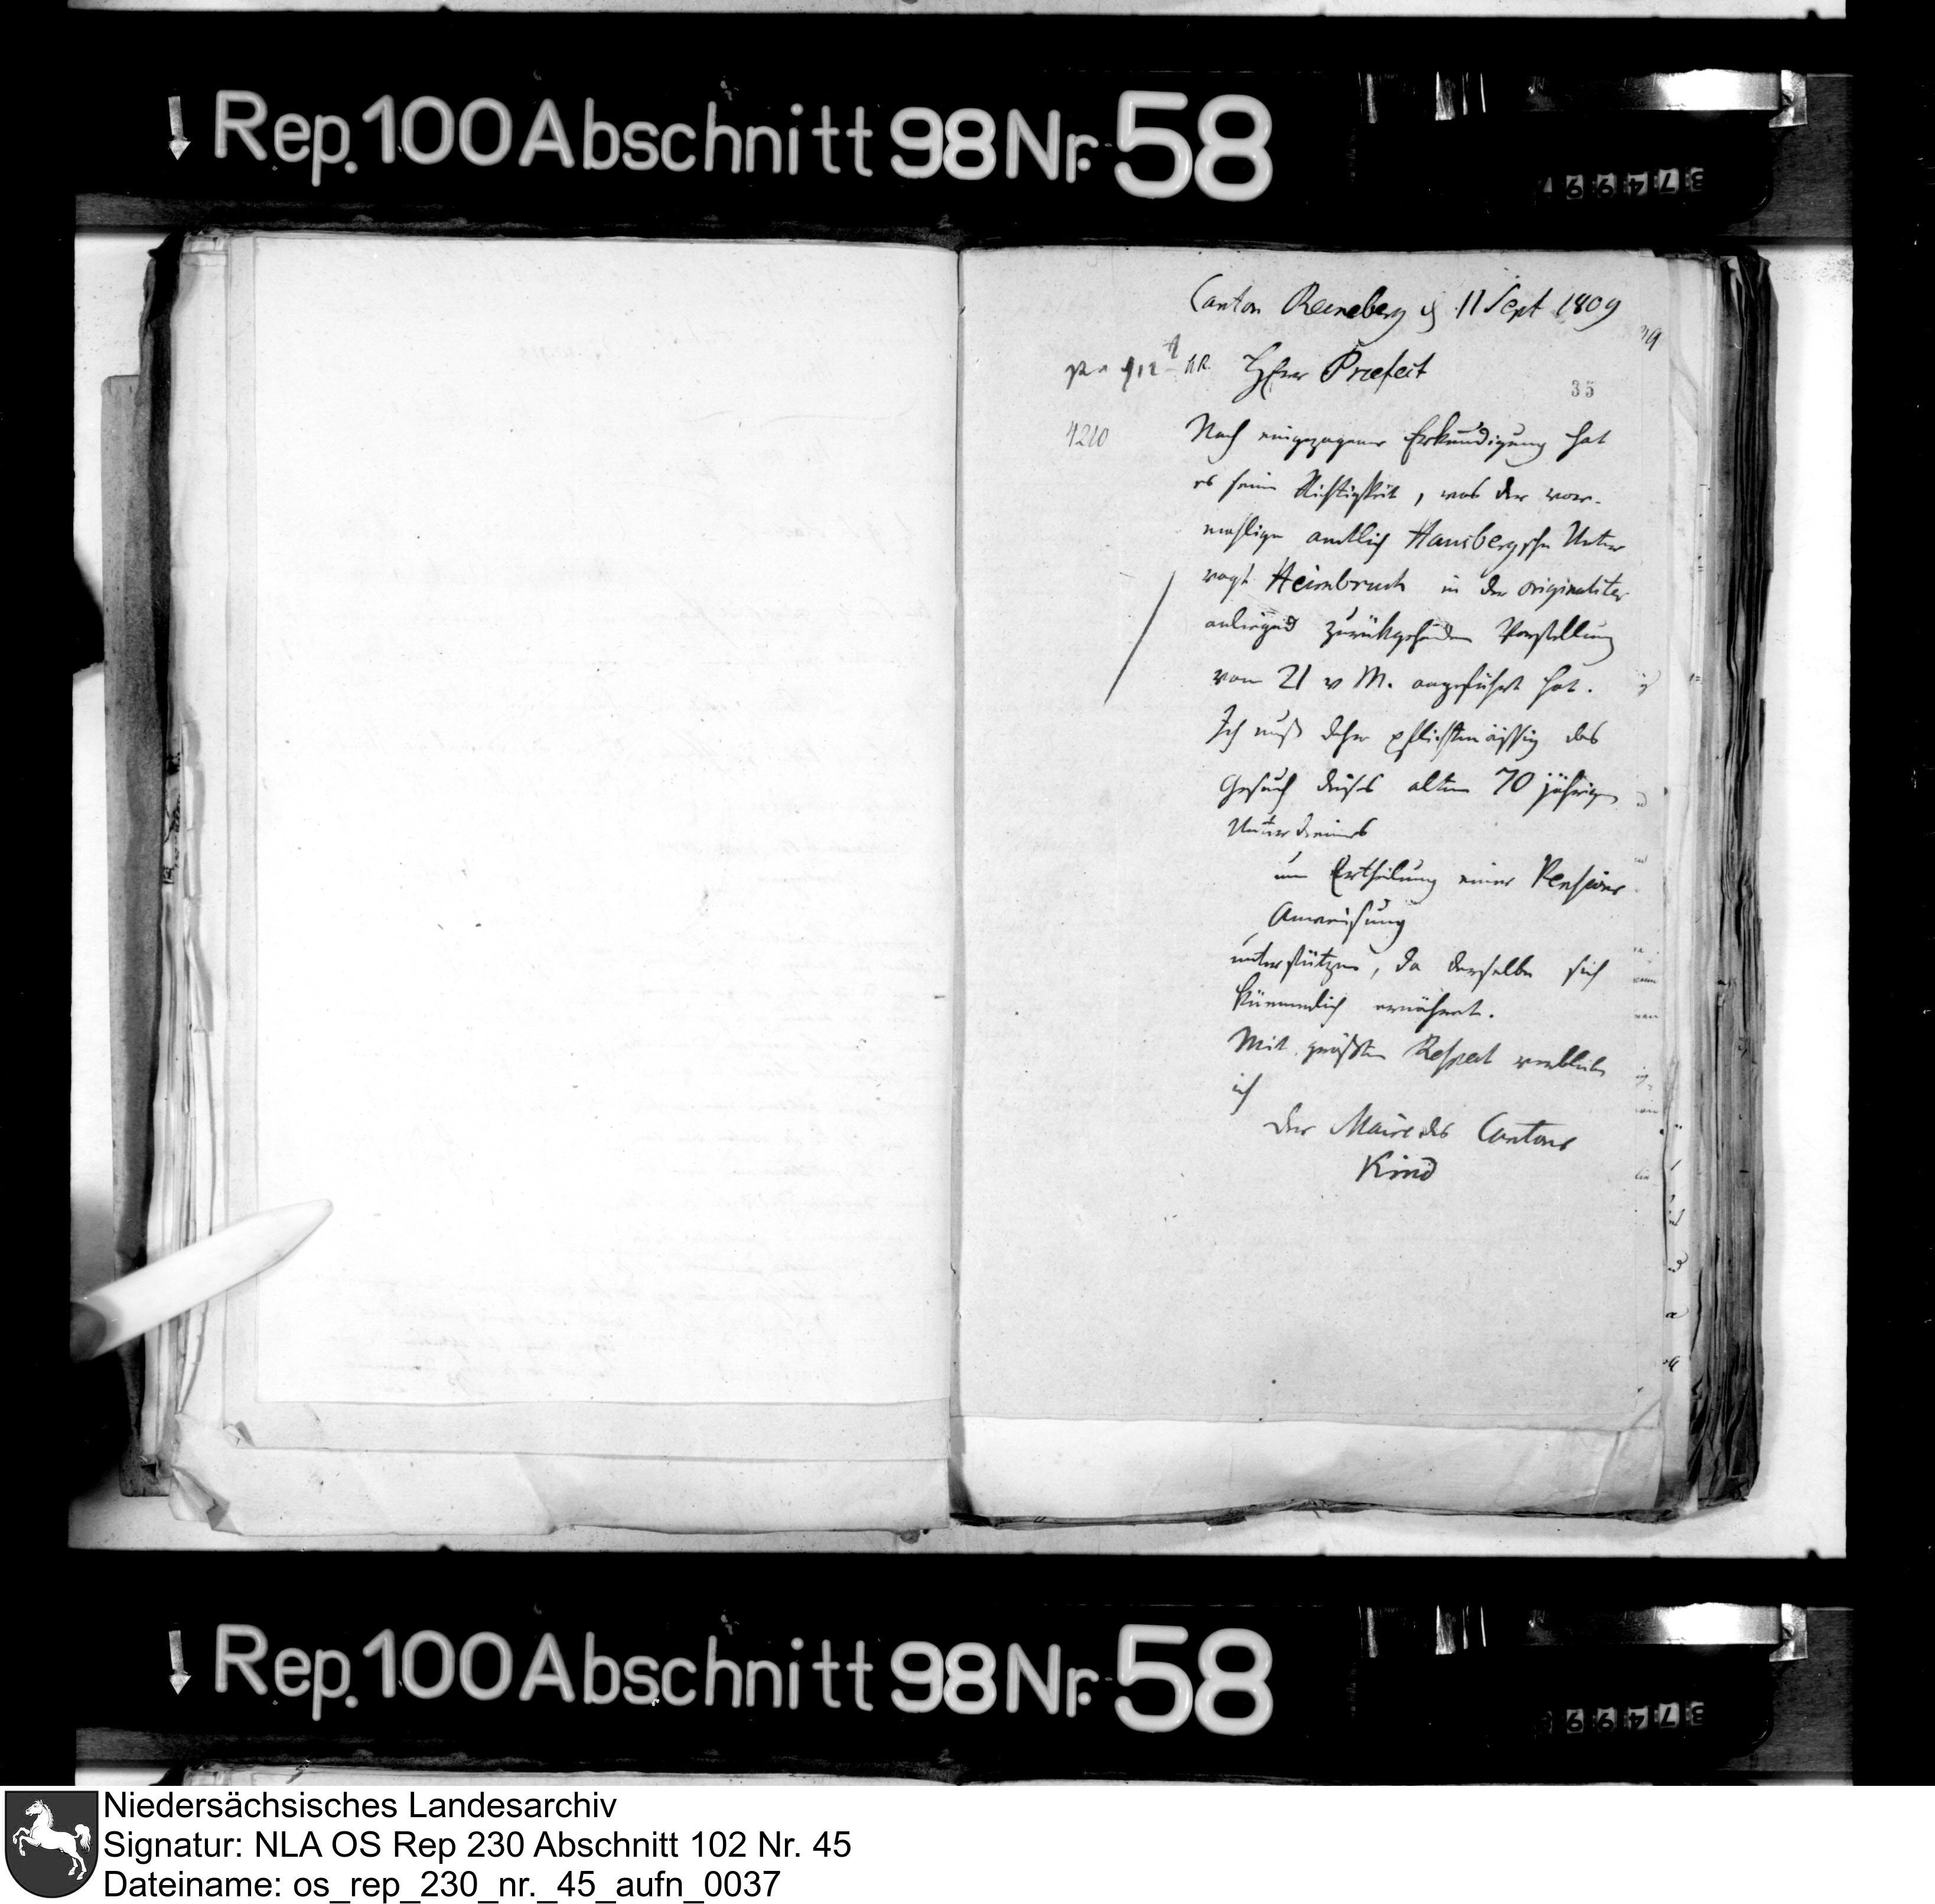 Rep. 100 Abschnitt 98 Nr. 58
Canton Reeneberg d 11 Sept 1809
Herr Praefect
35
4210
Nach eingezogener Erkundigung hat
es seine Richtigkeit, was der vor-
mahlige amtlich Hausbergsche Unter
vogt Heimbruch in der originaliter
anliegend zurükgehenden Vorstellung
vom 21 v M. angeführt hat.
Ich muß daher pflichtmässig das
Gesuch dieses alten 70 jährigen
Unterdieners
um Ertheilung einer Pensions
Anweisung
unterstützen, da derselbe sich
kümmerlich ernährt.
Mit größten Respect verbleibe
ich
Der Maire des Cantons
Kind
Rep. 100 Abschnitt 98 Nr. 58
Niedersächsisches Landesarchiv
Signatur: NLA OS Rep 230 Abschnitt 102 Nr. 45
Dateiname: os_rep_230_nr._45_aufn_0037